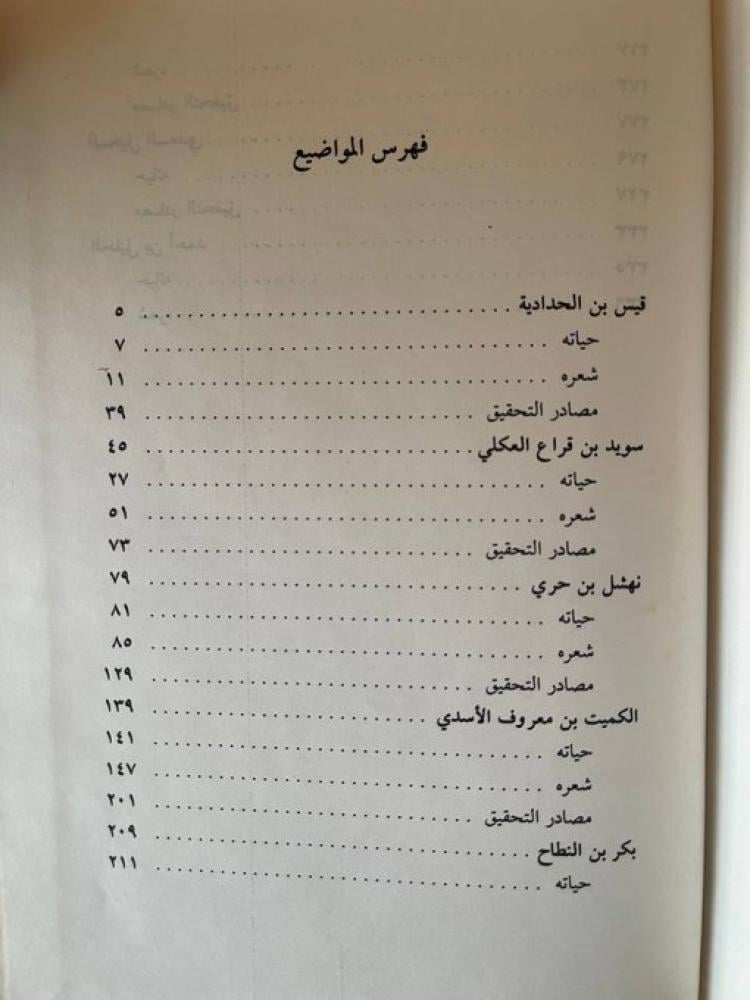 فهرس المواضيع
قيس بن الحدادية . . . . . . . . . . ٥
حياته . . . . . . . . . . ٧
شعره . . . . . . . . . . ١١
مصادر التحقيق . . . . . . . . . . ٣٩
سويد بن قراع العكلي . . . . . . . . . . ٤٥
حياته . . . . . . . . . . ٢٧
شعره . . . . . . . . . . ٥١
مصادر التحقيق . . . . . . . . . . ٧٣
نهشل بن حري . . . . . . . . . . ٧٩
حياته . . . . . . . . . . ٨١
شعره . . . . . . . . . . ٨٥
مصادر التحقيق . . . . . . . . . . ١٢٩
الكميت بن معروف الأسدي . . . . . . . . . . ١٣٩
حياته . . . . . . . . . . ١٤١
شعره . . . . . . . . . . ١٤٧
مصادر التحقيق . . . . . . . . . . ٢٠١
بكر بن النطاح . . . . . . . . . . ٢٠٩
حياته . . . . . . . . . . ٢١١